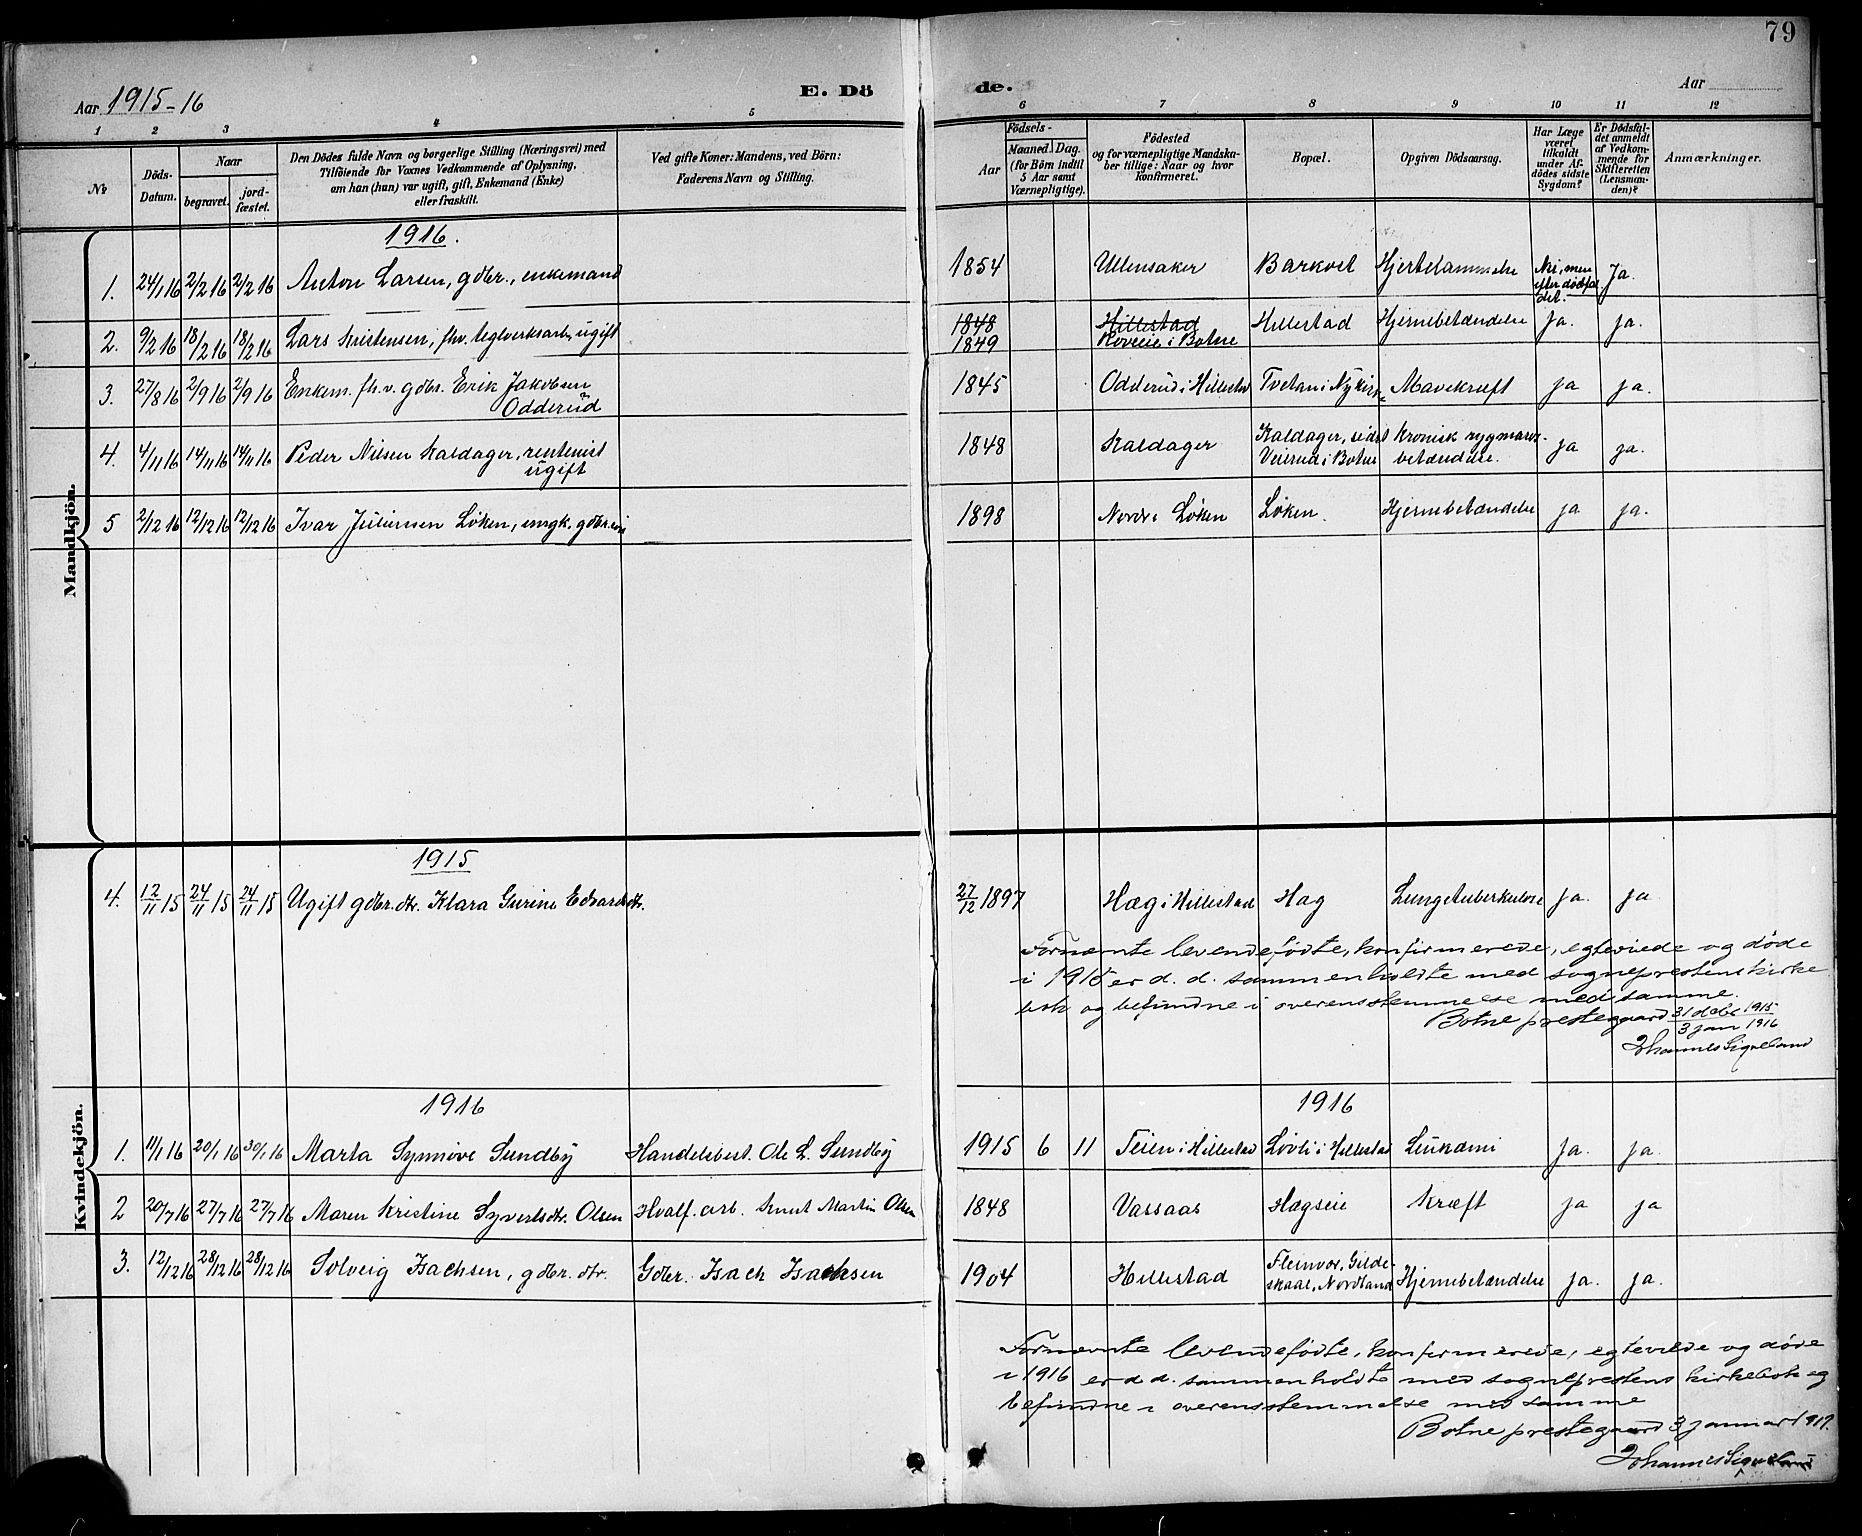 79
Aar 1915-16
E. Dö
de.
Aar
1 2 3 4 5 6 7 8 9 10 11 12
№
Döds-
Datum.
Naar
begravet.
jord-
fæstet.
Den Dödes fulde Navn og borgerlige Stilling (Næringsvei) med
Tilföiende for Voxnes Vedkommende af Oplysning,
om han (hun) var ugift, gift, Enkemand (Enke)
eller fraskilt.
Ved gifte Koner: Mandens, ved Börn:
Faderens Navn og Stilling.
Födsels-
Aar
Maaned. Dag.
(for Börn indtil
5 Aar samt
Værnepligtige).
Födested
og for værnepligtige Mandska-
ber tillige: Naar og hvor
konfirmeret.
Bopæl.
Opgiven Dödsaarsag.
Har Læge
været
tilkaldt
under Af-
dödes sidste
Sygdom?
Er Dödsfal-
det anmeldt
af Vedkom-
mende for
Skifteretten
(Lensman-
den)?
Anmærkninger.
Mandkjön.
1916.
1. 24/1 16 2/2 16 2/2 16 Anton Larsen, gdbr., enkemand 1854 Ullensaker Barkost Hjertelammelse Nei, men Ja.
efter dødsfal
det.
2. 9/2 16 18/2 16 18/2 16 Lars Kristensen, fhv. teglverksarb., ugift 1848 Hillestad Hillestad Hjernebetændelse Ja. ja.
1849 Roveie i Botne
3. 27/8 16 2/9 16 2/9 16 Enkem. fh.v. gdbr. Erik Jakobsen 1845 Odderud i Hillestad Tvetan i Nykirke Mavekræft ja ja.
Odderud
4. 4/11 16 14/11 16 14/11 16 Peder Nilsen Kaldager, rentenist 1848 Kaldager Kaldager, sidst Kronisk rygmarvs- ja ja.
ugift Veierud i Botne betændelse.
5 2/12 16 12/12 16 12/12 16 Ivar Juliussen Løken, ungk. gdbr. 1898 Nordre Løken Løken. Hjernebetændelse ja ja.
Kvindekjön.
1915
4. 12/11 15 24/11 15 24/11 15 Ugift gdbr.dtr. Klara Gurine Edvardsdtr. 27/12 1897 Hæg i Hillestad Hag Lungetuberkulose ja. ja
Fornævnte levendefødte, konfirmerede, egteviede og døde
i 1915 er d. d. sammenholdte med sogneprestens kirke
bok og befundne i overensstemmelse med samme.
Botne prestegaard 31 decbr 1915
3 jan 1916
Johannes Sigveland
1916 1916
1. 11/1 16 20/1 16 30/1 16 Marta Synnøve Sundby Handelsbest. Ole L. Sundby 1915 6 11 Teien i Hillestad Løvli i Hillestad Leukæmi Ja. Ja.
2 20/7 16 27/7 16 27/7 16 Maren Kristine Syvertsdtr. Olsen Hvalf. arb. Knut Martin Olsen 1848 Vassaas Hagseie Kræft ja ja
3. 12/12 16 28/12 16 28/12 16 Solveig Isachsen, gdbr. dtr. Gdbr. Isach Isachsen 1904 Hillestad Fleinvær, Gilde- Hjernebetændelse ja. ja.
skaal, Nordland
Fornævnte levendefødte, konfirmerede, egteviede og døde
i 1916 er d d. sammenholdt med sogneprestens kirkebok og
befundne i overensstemmelse med samme
Botne prestegaard 3 januar 1917.
Johannes Sigveland